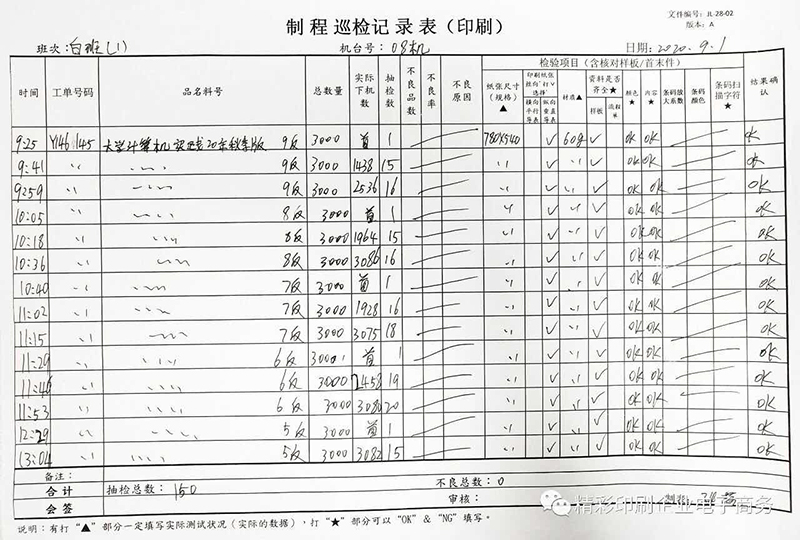 文件编号: JL-28-02
版本: A
制程巡检记录表(印刷)
班次: 白班(1) 机台号: 08机 日期: 2020.9.1
时间 工单号码 品名料号 总数量 实际下机数 抽检数 不良品数 不良率 不良原因 检验项目(含核对样板/首末件) 结果确认
纸张尺寸(规格)▲ 印刷纸张丝向"打√选择" 横向平行导表 纵向垂直导表 材质▲ 资料是否齐全★ 样板 流程单 颜色★ 内容★ 条码放大系数 条码颜色 条码扫描字符★
9:25 Y146145 大学计算机 20东秋季版 9反 3000 首 1 780X540 √ 60g √ OK OK OK
9:41 〃 〃 9反 3000 1438 15 〃 √ 〃 √ OK OK OK
9:59 〃 〃 9反 3000 2536 16 〃 √ 〃 √ OK OK OK
10:05 〃 〃 8反 3000 首 1 〃 √ 〃 √ OK OK OK
10:18 〃 〃 8反 3000 1964 15 〃 √ 〃 √ OK OK OK
10:36 〃 〃 8反 3000 3086 16 〃 √ 〃 √ OK OK OK
10:40 〃 〃 7反 3000 首 1 〃 √ 〃 √ OK OK OK
11:02 〃 〃 7反 3000 1928 16 〃 √ 〃 √ OK OK OK
11:15 〃 〃 7反 3000 3075 18 〃 √ 〃 √ OK OK OK
11:29 〃 〃 6反 3000 首 1 〃 √ 〃 √ OK OK OK
11:46 〃 〃 6反 3000 2458 19 〃 √ 〃 √ OK OK OK
11:53 〃 〃 6反 3000 3080 20 〃 √ 〃 √ OK OK OK
12:29 〃 〃 5反 3000 首 1 〃 √ 〃 √ OK OK OK
13:04 〃 〃 5反 3000 3082 15 〃 √ 〃 √ OK OK OK
备注:
合计 抽检总数: 150 不良总数: 0
会签 审核: 制表:
精彩印刷企业电子商务
说明: 有打"▲"部分一定填写实际测试状况(实际的数据), 打"★"部分可以"OK"&"NG"填写。